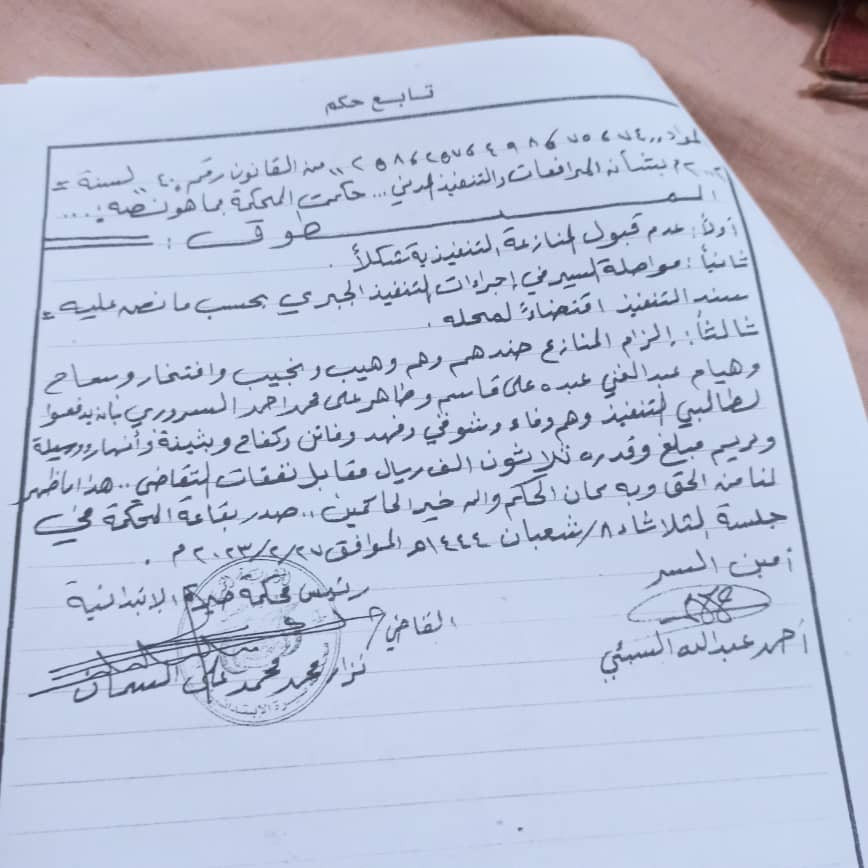 تابع حكم
من القانون رقم ٤٠ لسنة =
٢٠٠٢م بشأن المرافعات والتنفيذ المدني... حكمت المحكمة بما هو نصه:....
المنطوق:
أولاً: عدم قبول المنازعة التنفيذية شكلاً.
ثانياً: مواصلة السير في إجراءات التنفيذ الجبري بحسب ما نص عليه =
سند التنفيذ اقتضاءً لمحله.
ثالثاً: إلزام المنازع ضدهم وهم وهيب ونجيب وافتخار وسماح
وهيام عبدالغني عبده علي قاسم وطاهر علي محمد احمد السروري بان يدفعوا
لطالبي التنفيذ وهم وفاء وشوقي وفهد وفاتن وكفاح وبثينة وأنهار وجميلة
ومريم مبلغ وقدره ثلاثون الف ريال مقابل نفقات التقاضي.. هذا ما ظهر
لنا من الحق وبه كان الحكم والله خير الحاكمين.. صدر بقاعة المحكمة في
جلسة الثلاثاء ٨/شعبان ١٤٤٤هـ الموافق ٢٠٢٣/٢/٢٧م.
أمين السر
رئيس محكمة الابتدائية
القاضي/
أحمد عبدالله السبئي
نزار محمد محمد علي السمان